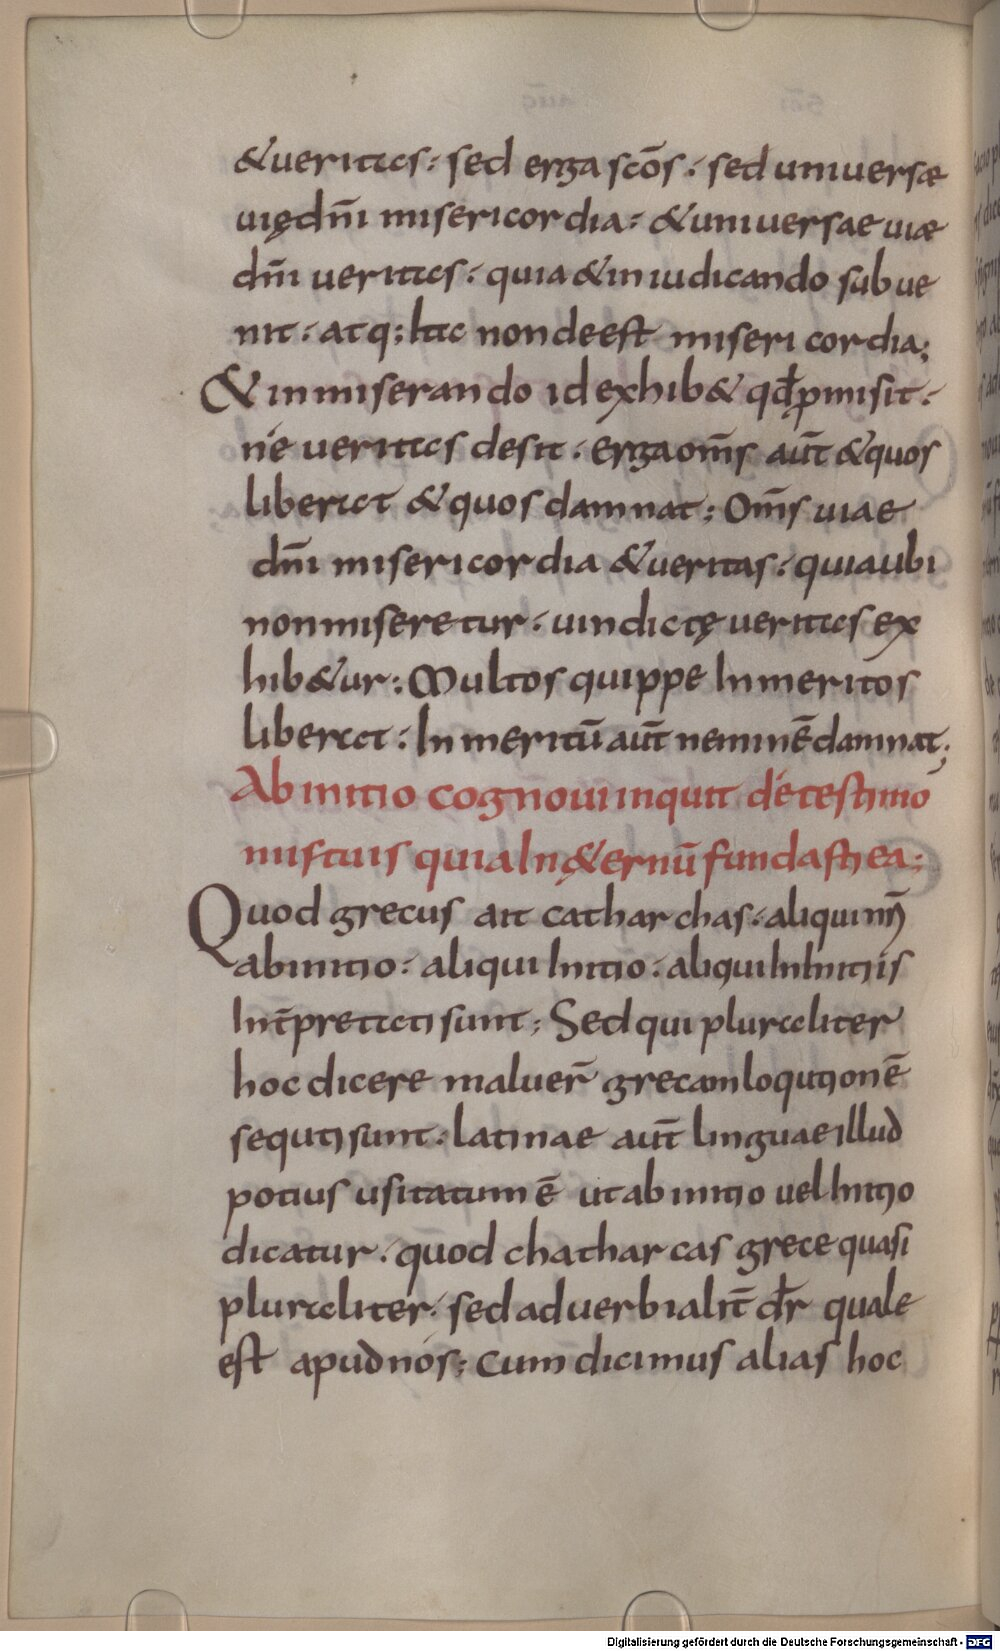 &ueritas: sed erga scōs: sed uniuersæ
uię dn̄i misericordia: & uniuersae uiæ
dn̄i ueritas: quia & in iudicando subue
nit: atq; hac non deest misericordia;
& in miserando id exhib& qđ p̄misit:
né ueritas desit: erga om̄s aūt & quos
liberat & quos damnat; Om̄s uiae
dn̄i misericordia & ueritas: quia ubi
non miseretur: uindictę ueritas ex
hib&ur: Multos quippe Inmeritos
liberat: Inmeritū aūt neminē damnat;
Ab initio cognoui inquit dé testimo
niis tuis quia In ę&ernū fundasti ea;
Quod grecus ait catharchas: aliqui nr̄i
ab initio: aliqui Initio: aliqui In Initiis
Int̄pretati sunt; Sed qui pluraliter
hoc dicere maluer̄ grecam loqutionē
sequti sunt: latinae aūt linguae illud
potius usitatum ē ut ab initio uel Initio
dicatur: quod chatharcas grece quasi
pluraliter: sed aduerbialit̄ dr̄ quale
est apud nós; Cum dicimus alias hoc
Digitalisierung gefördert durch die Deutsche Forschungsgemeinschaft - DFG